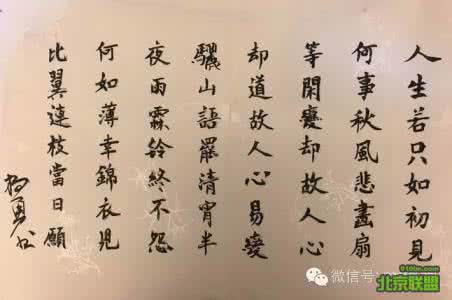 人生若只如初見
何事秋風悲畫扇
等閑變却故人心
却道故人心易變
驪山語罷清宵半
夜雨霖鈴終不怨
何如薄幸錦衣兒
比翼連枝當日願
杨勇书
微信号:
010lm.com
北京联盟